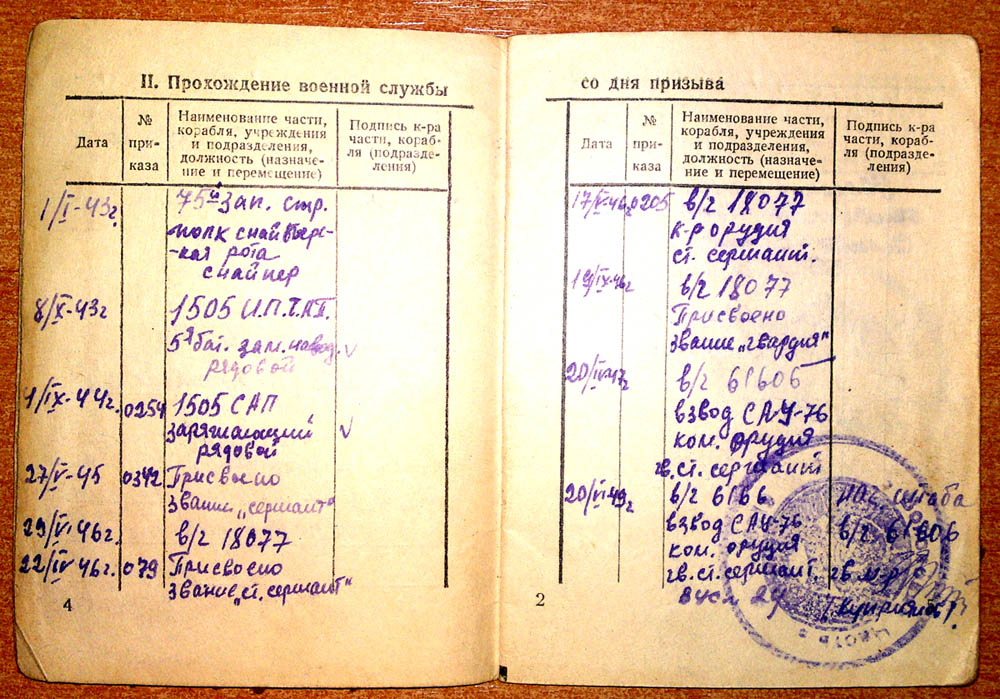 II. Прохождение военной службы
Дата
№ при-
каза
Наименование части,
корабля, учреждения
и подразделения,
должность (назначе-
ние и перемещение)
Подпись к-ра
части, кораб-
ля (подразде-
ления)
1/I-43г.
75й зап. стр.
полк снайпер-
-кая рота
снайпер
8/X-43г
1505 И.П.Т.А.П.
5я бат. зам. навод. √
рядовой
1/IX-44г. 0254 1505 САП
заряжающий √
рядовой
27/V-45 0342 Присвоено
звание „сержант"
29/VI 46г. в/г 18077
22/IV 46г. 079 Присвоено
звание „ст. сержант"
4
со дня призыва
Дата
№ при-
каза
Наименование части,
корабля, учреждения
и подразделения,
должность (назначе-
ние и перемещение)
Подпись к-ра
части, кораб-
ля (подразде-
ления)
0205 в/г 18077
к-р орудия
ст. сержант.
19/IX-46г в/г 18077
Присвоено
звание „гвардия"
20/IV-47г в/г 61606
взвод САУ-76
ком. орудия
гв. ст. сержант
20/VI-49г в/г 6166 нач. штаба
взвод САУ-76 в/г 61606
ком. орудия
гв. ст. сержант. гв. м-р
2
часть